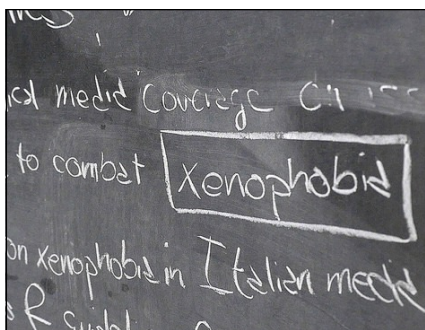 ical media coverage on
to combat xenophobia
on xenophobia in Italian media
R